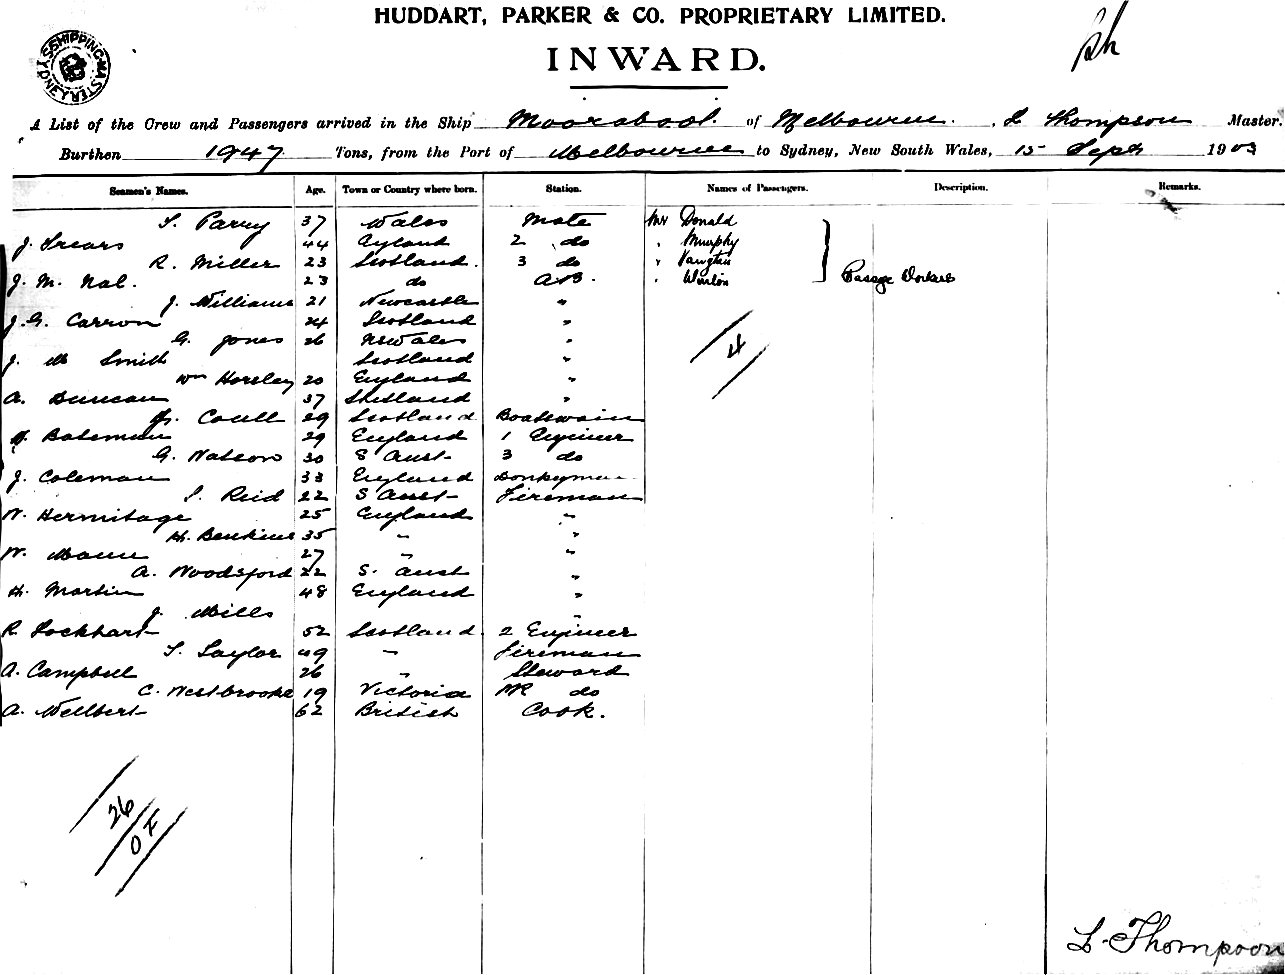 HUDDART, PARKER & CO. PROPRIETARY LIMITED.
SHIPPING MASTER SYDNEY
INWARD.
A List of the Crew and Passengers arrived in the Ship Moorabool. of Melbourne. , L Thompson Master.
Burthen 1947 Tons, from the Port of Melbourne to Sydney, New South Wales, 15 Sept 1903
Seamen's Names. Age. Town or Country where born. Station. Names of Passengers. Description. Remarks.
T. Parry 37 Wales Mate Mr Donald
J. Frears 44 2 do " Murphy
R. Miller 23 Scotland. 3 do "
J. M. Nal. 23 do AB. "
Passage Workers
J. Williams 21 Newcastle "
J. G. Carron 24 Scotland "
G. Jones 26 NSWales "
J. M Smith Scotland "
4
Wm Horsley 20 England "
A. Duncan 37 Shetland "
Coull 29 Scotland Boatswain
Bateman 29 England 1 Engineer
G. Watson 30 S Aust- 3 do
J. Coleman 33 England Donkeyman
Reid 22 S Aust- Fireman
W. Hermitage 25 England "
H. Benkins 35 " "
W. Mann 27 " "
A. Woodsford 22 S. Aust "
H. Martin 48 England "
J. Mills "
R. Lockhart 52 Scotland. 2 Engineer
T. Taylor 49 " Fireman
A. Campbell 26 " Steward
C. Westbrooke 19 Victoria do
A. Wellbert 62 British Cook.
26
OF
L. Thompson